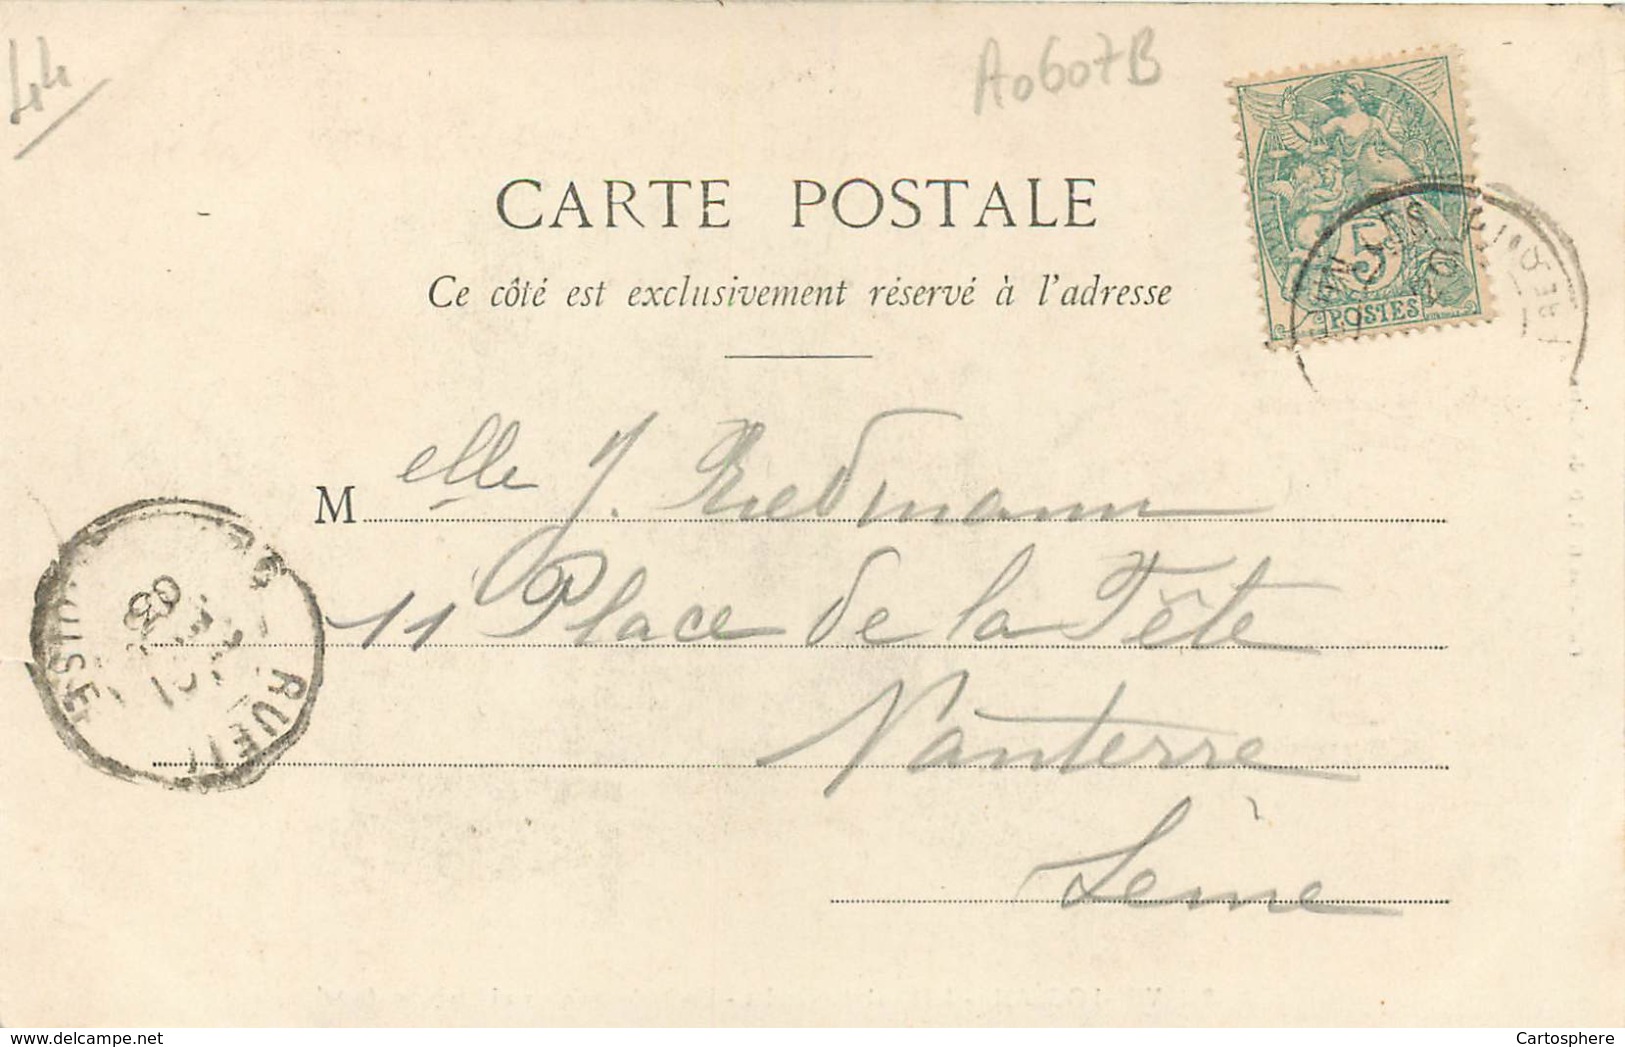 44
A0607B
CARTE POSTALE
Ce côté est exclusivement réservé à l'adresse
5
POSTES
Melle J. Riedmann
11 Place de la Fête
Nanterre
Seine
RUEIL
03
www.delcampe.net
Cartosphere